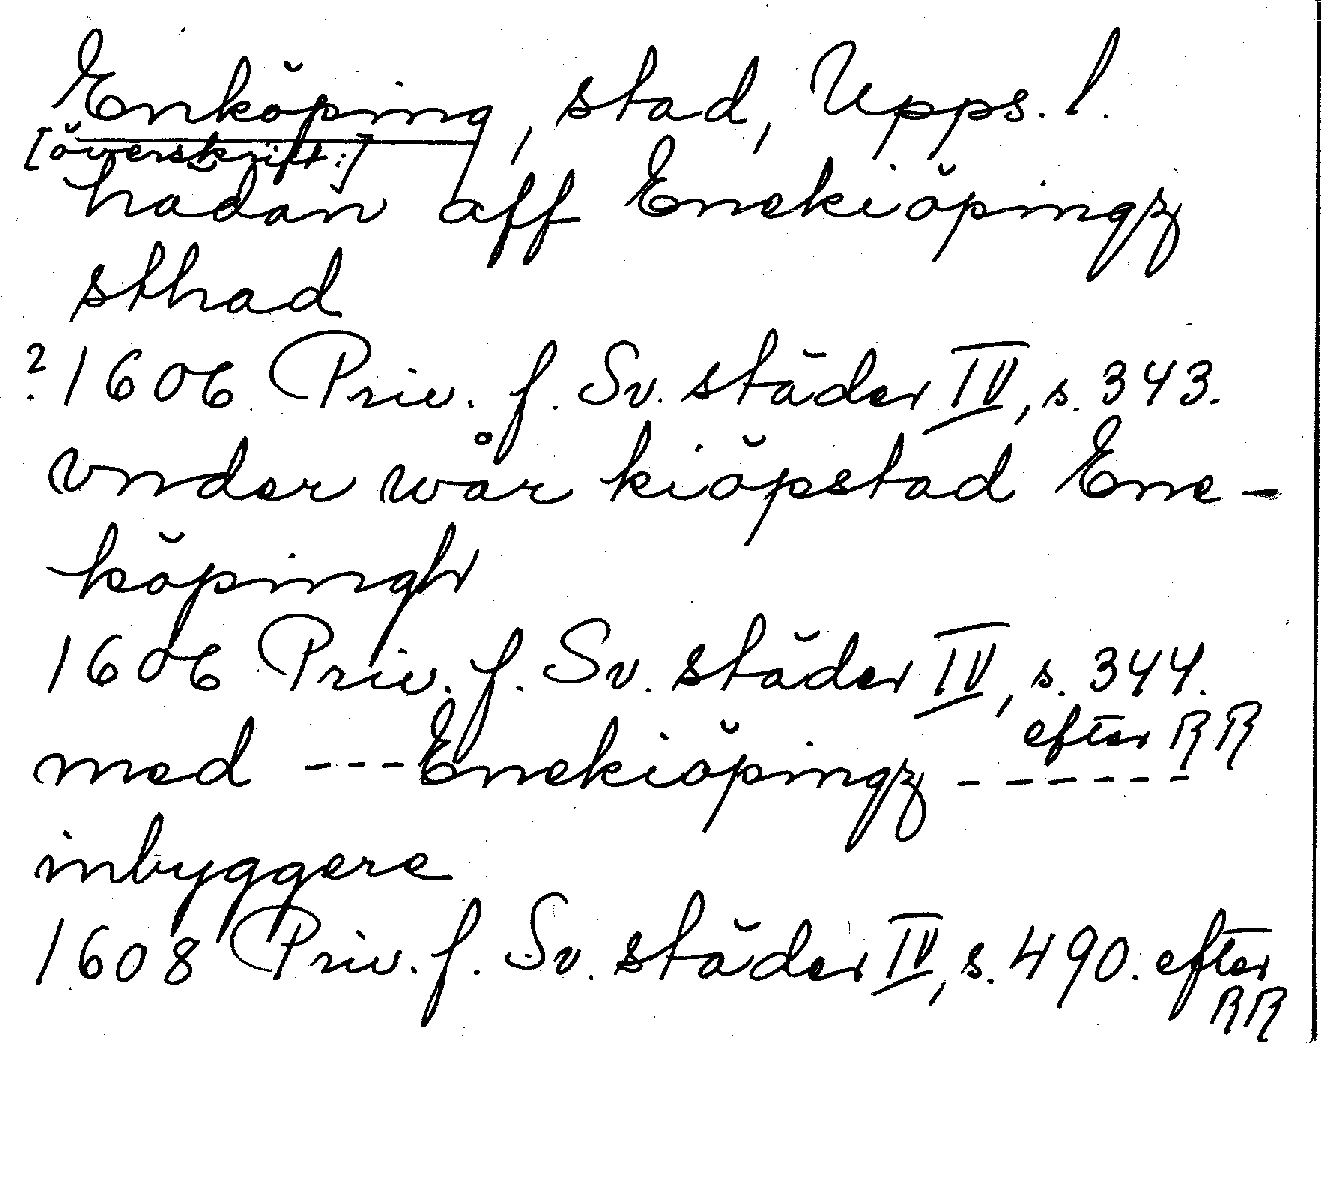 Enköping, stad, Upps. l.
[överskrift:]
hadan aff Enekiöpingz
sthad
? 1606 Priv. f. Sv. städer IV, s. 343.
vnder wår kiöpstad Ene-
köpingh
1606 Priv. f. Sv. städer IV, s. 344.
efter RR
med --- Enekiöpingz ------
inbyggere
1608 Priv. f. Sv. städer IV, s. 490. efter
RR